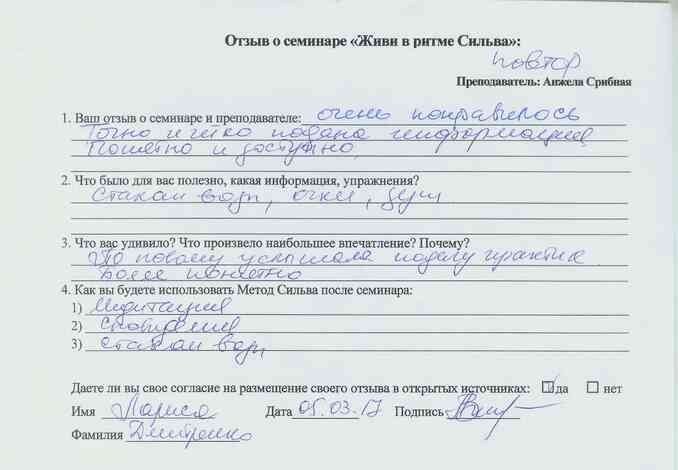 Отзыв о семинаре «Живи в ритме Сильва»:
повтор
Преподаватель: Анжела Срибная
1. Ваш отзыв о семинаре и преподавателе: очень понравилось
Точно и чётко подана информация
Понятно и доступно.
2. Что было для вас полезно, какая информация, упражнения?
Стакан воды, очки, душ
3. Что вас удивило? Что произвело наибольшее впечатление? Почему?
По новому услышала подачу практик
более понятно
4. Как вы будете использовать Метод Сильва после семинара:
1) Медитация
2) Сновидения
3) Стакан воды
Даете ли вы свое согласие на размещение своего отзыва в открытых источниках: ☑ да ☐ нет
Имя Лариса Дата 05.03.17 Подпись
Фамилия Дмитренко